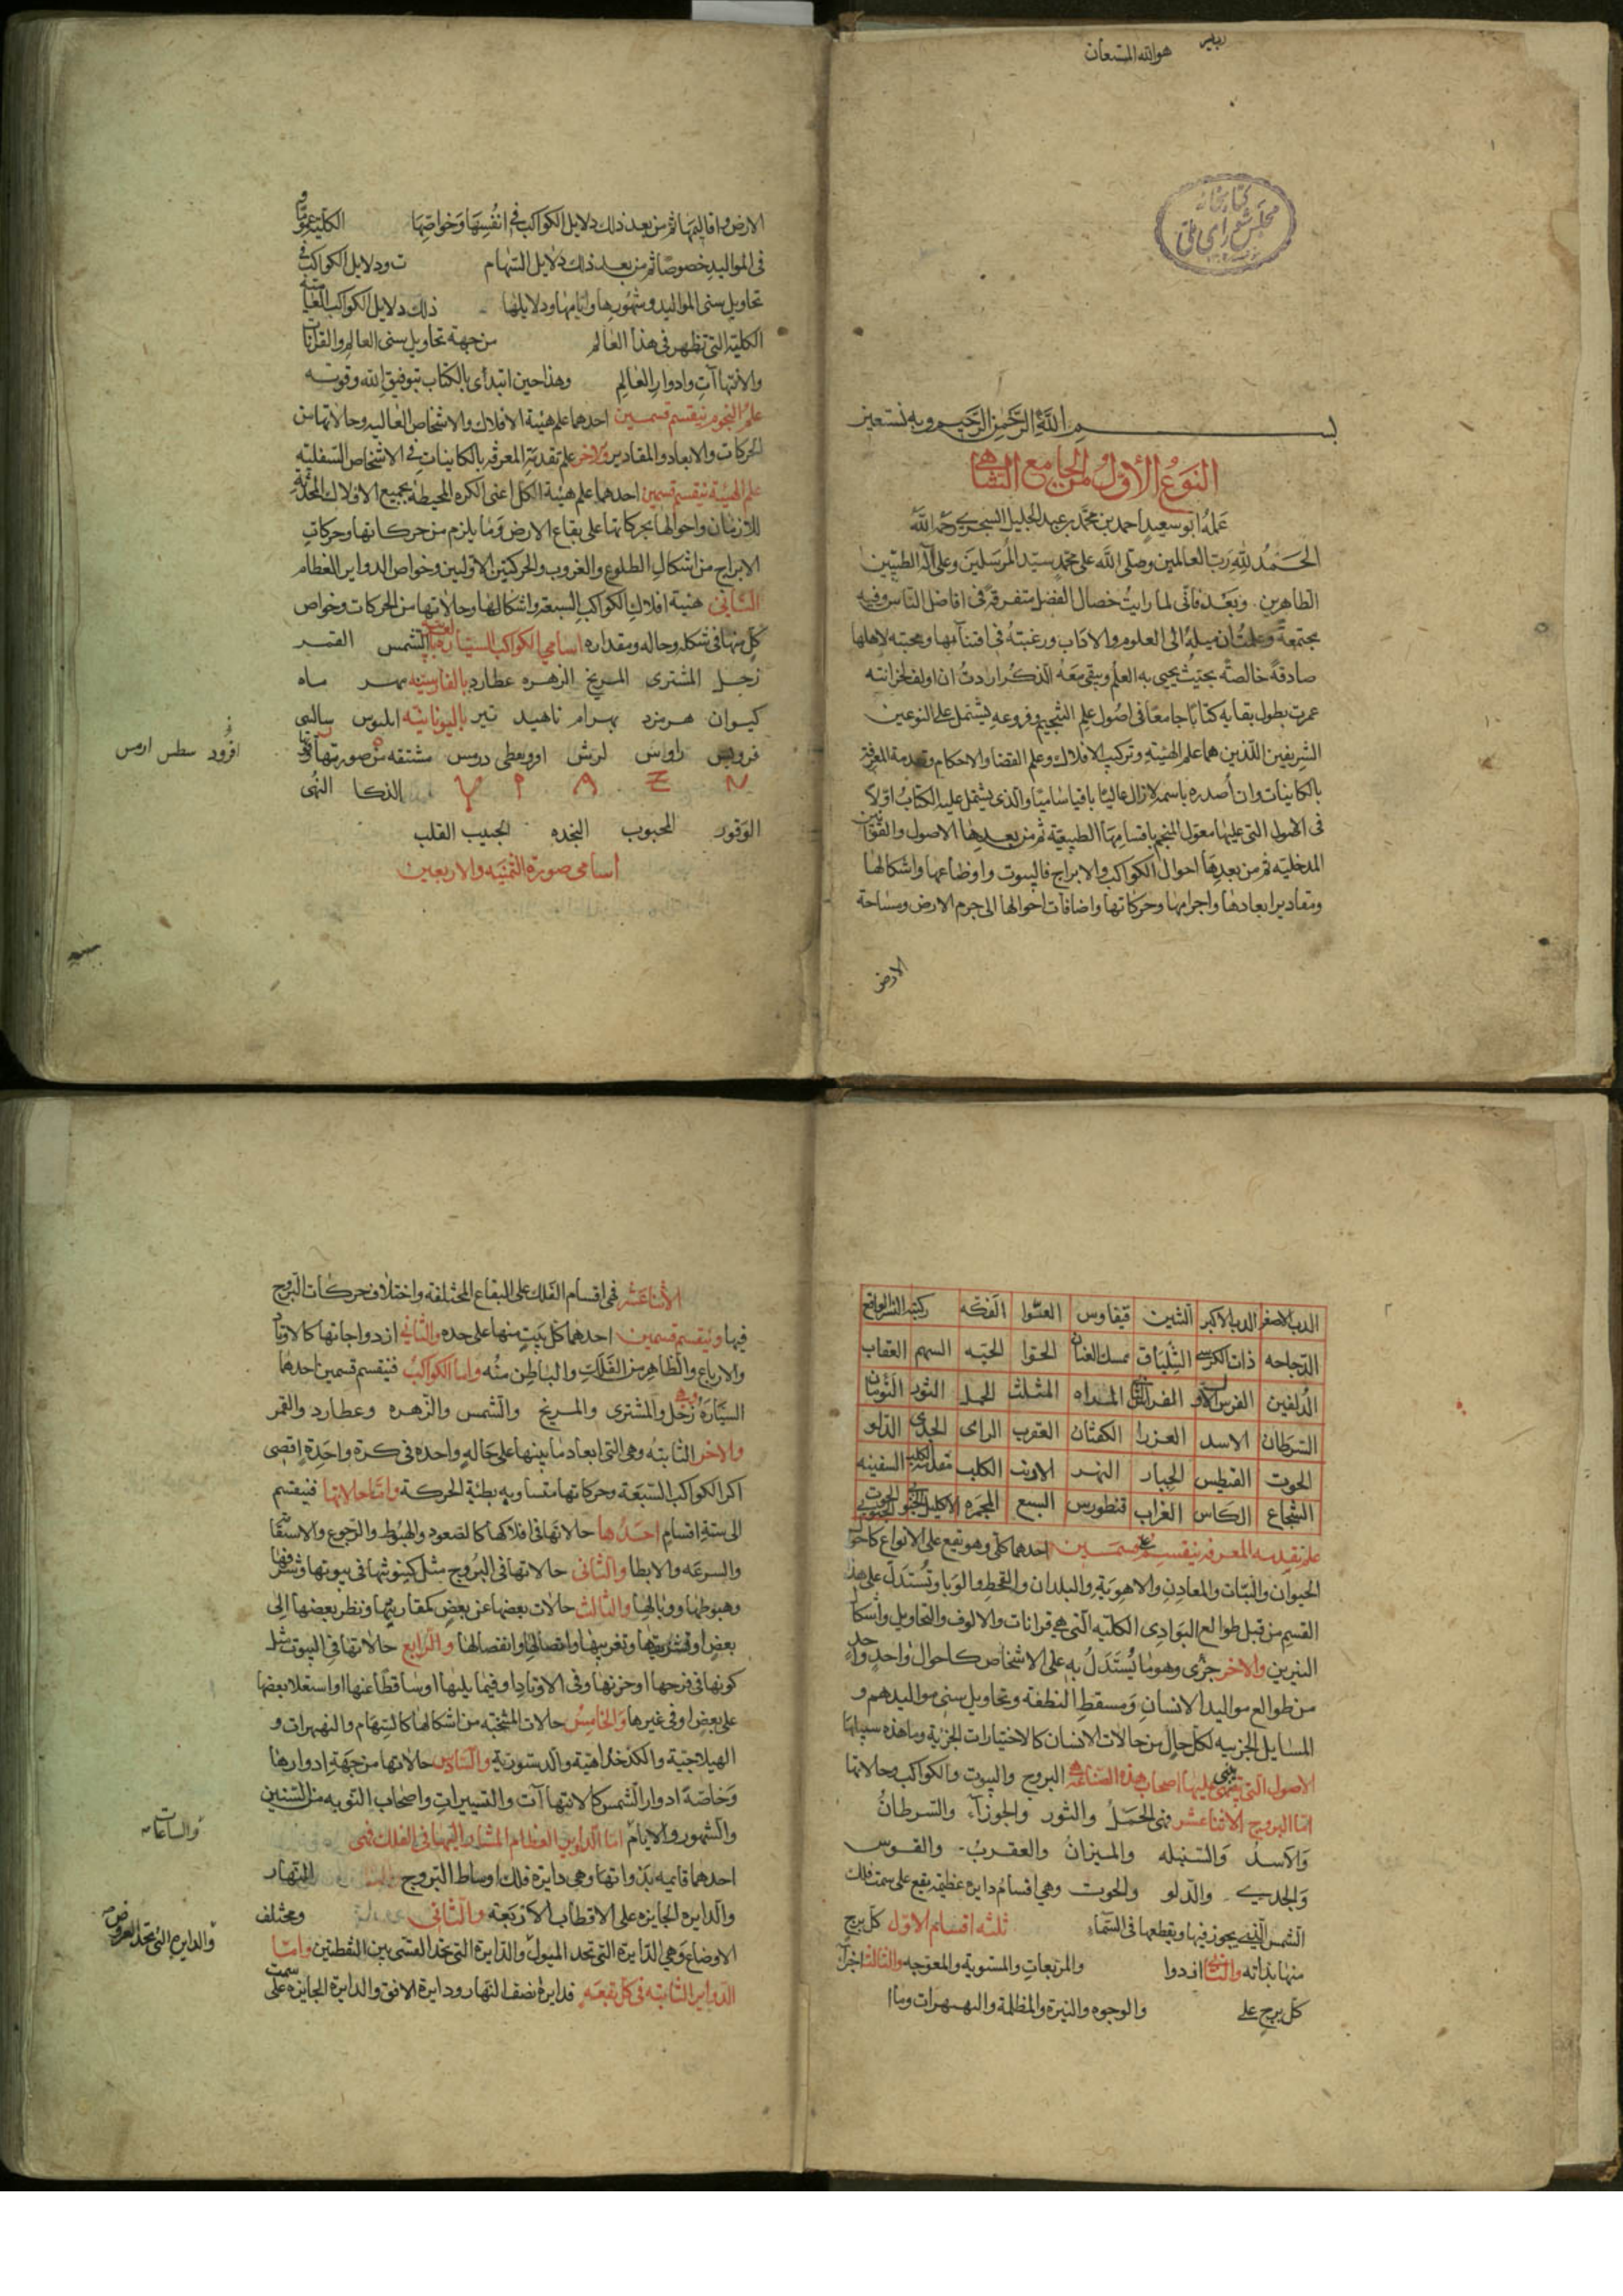 هو الله المستعان
كتابخانه
مجلس شورای ملی
بسم الله الرحمن الرحيم وبه نستعين
النوع الأول من الجامع الشاهي
عمله ابو سعيد احمد بن محمد بن عبد الجليل السجزي رحمه الله
الحمد لله رب العالمين وصلى الله على محمد سيد المرسلين وعلى آله الطيبين
الطاهرين وبعد فانى لما رايت خصال الفضل متفرقة فى افاضل الناس وفيه
مجتمعة وعلمت ان ميله الى العلوم والاداب ورغبته فى اقتنآئها ومحبته لاهلها
صادقة خالصة بحيث يحيى به العلم ويبقى معه الذكر اردت ان اولف لخزانته
عمرت بطول بقايه كتابا جامعا فى اصول علم التنجيم وفروعه يشتمل على النوعين
الشريفين اللذين هما علم الهيئة وتركيب الافلاك وعلم القضا والاحكام وتقدمة المعرفة
بالكاينات وان أصدره باسمه لازال عاليا باقيا ساميا والذى يشتمل عليه الكتاب اولا
فى الاصول التى عليها معول المنجم باقسامها الطبيعية ثم من بعدها الاصول والقوانين
المدخلية ثم من بعدها احوال الكواكب والابراج فالبيوت واوضاعها واشكالها
ومقادير ابعادها واجرامها وحركاتها واضافات احوالها الى جرم الارض ومساحة
الارض
الارض واقاليمها ثم من بعد ذلك دلايل الكواكب فى انفسها وخواصها الكلية عموما و
فى المواليد خصوصا ثم من بعد ذلك دلايل السهام ت ودلايل الكواكب فى
تحاويل سنى المواليد وشهورها وايامها ودلايلها ذلك دلايل الكواكب
الكلية التى تظهر فى هذا العالم من جهة تحاويل سنى العالم والقرانات
والانتهاآت وادوار العالم وهذا حين ابتدأى بالكتاب بتوفيق الله وقوته
علم النجوم ينقسم قسمين احدهما علم هيئة الافلاك والاشخاص العالية وحالاتها من
الحركات والابعاد والمقادير والاخر علم تقدمة المعرفة بالكاينات فى الاشخاص السفلية
علم الهيئة ينقسم قسمين احدهما علم هيئة الكل اعنى الكره المحيطة بجميع الافلاك المحدثة
للازمان واحوالها بحركاتها على بقاع الارض وما يلزم من حركاتها وحركات
الابراج من اشكال الطلوع والغروب والحركتين الاوليين وخواص الدواير العظام
الثانى هيئة افلاك الكواكب السبعة واشكالها وحالاتها من الحركات وخواص
كل منها فى شكله وحاله ومقداره اسامى الكواكب السيارة الشمس القمر
زحل المشترى المريخ الزهره عطارد بالفارسيه مهر ماه
كيوان هرمزد بهرام ناهيد تير باليونانيه ايليوس سالنى
قرونس راواس لريش اورويعطى درمس مشتقه من صورتها
الذكا النهى
افرود سطس ارمس
الوقور المحبوب النجده الحبيب القلب
أسامى صورة الثمنيه والاربعين
الدب الاصغر الدب الاكبر التنين قيقاوس العسوا الفكه ركبته النسر الواقع
الدجاجه ذات الكرسى الشلياق ممسك العنان الحوا الحيه السهم العقاب
الدلفين الفرس الاول الفرس الثانى المراه المثلث الحمل الثور التومان
السرطان الاسد العزرا الكفتان العقرب الرامى الجدى الدلو
الحوت القيطس الجبار النهر الارنب الكلب مقدمة الكلب السفينه
الشجاع الكاس الغراب قنطورس السبع المجمره الاكليل الجنوبى الحوت الجنوبى
علم تقدمه المعرفه ينقسم على قسمين احدهما كلى وهو يقع على الانواع كاحوال
الحيوان والنبات والمعادن والاهوية والبلدان والقحط والوبا وتستدل على هذا
القسم من قبل طوالع البوادى الكليه التى هى قرانات والالوف والتحاويل واشكال
النيرين والاخر جزى وهو ما يستدل به على الاشخاص كاحوال واحد واحد
من طوالع مواليد الانسان ومسقط النطفة وتحاويل سنى مواليدهم و
المسايل الجزييه لكل حال من حالات الانسان كالاختيارات الجزية وما هذه سبيلها
الاصول التى يبنى عليها اصحاب هذه الصناعة هى البروج والبيوت والكواكب وحالاتها
اما البروج الاثنا عشر فهى الحمل والثور والجوزآء والسرطان
والاسد والسنبله والميزان والعقرب والقوس
والجدى والدلو والحوت وهى اقسام دايره عظيمه يقع على سمت فلك
الشمس الذى يجوز فيها ويقطعها فى السماء ثلثه اقسام الاول كل برج
منها بذاته والثانى ازدوا والمربعات والمستوية والمعوجه والثالث اجزآ
كل برج على والوجوه والنيرة والمظلمة والنهبهرات وما
الاثنا عشر فهى اقسام الفلك على البقاع المختلفه واختلاف حركات البروج
فيها وينقسم قسمين احدهما كل بيت منها على حده والثانى ازدواجاتها كالاوتاد
والارباع والظاهر من الفلك والباطن منه واما الكواكب فينقسم قسمين احدهما
السيارة وهى زحل والمشترى والمريخ والشمس والزهره وعطارد والقمر
والاخر الثابته وهى التى ابعاد ما بينها على حالة واحده فى كرة واحدة اقصى
اكر الكواكب السبعة وحركاتها متساويه بطئية الحركة واما حالاتها فينقسم
الى ستة اقسام احدها حالاتها فى افلاكها كالصعود والهبوط والرجوع والاستقامة
والسرعه والابطا والثانى حالاتها فى البروج مثل كينونتها فى بيوتها وشرفها
وهبوطها ووبالها والثالث حالات بعضها عن بعض كمقارنتها ونظر بعضها الى
بعض او تشريقها وتغريبها واتصالها وانفصالها والرابع حالاتها فى البيوت مثل
كونها فى فرحها او حزنها وفى الاوتاد او فيما يليها او ساقطا عنها او استعلا بعضها
على بعض او فى غيرها والخامس حالات المنتخبه من اشكالها كالسهام والنهبهرات و
الهيلاجية والكدخداهية والدستورية والسادس حالاتها من جهة ادوارها
وخاصة ادوار الشمس كالانتهاآت والتسييرات واصحاب النوبه من السنين
والشهور والايام اما الدواير العظام المشار اليها فى الفلك فهى
والساعات
احدهما قايمه بذواتها وهى دايرة فلك اوساط البروج النهار
والدايره الجايزه على الاقطاب الاربعه والثانى ومختلف
والدايره التى تحد العروض
الاوضاع وهى الدايرة التى تحد الميول والدايرة التى تحد القسى بين النقطتين واما
الدواير الثابته فى كل بقعه فدايرة نصف النهار ودايرة الافق والدايرة الجايزه على سمت